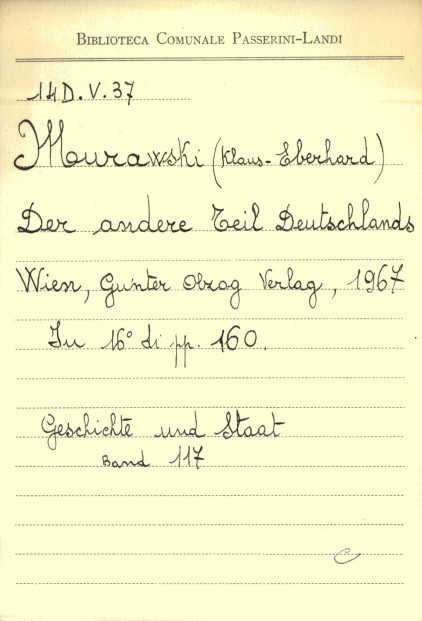 BIBLIOTECA COMUNALE PASSERINI-LANDI
14D.V.37
Murawski (Klaus-Eberhard)
Der andere Teil Deutschlands
Wien, Gunter Olzog Verlag, 1967
In 16° di pp. 160.
Geschichte und Staat
Band 117